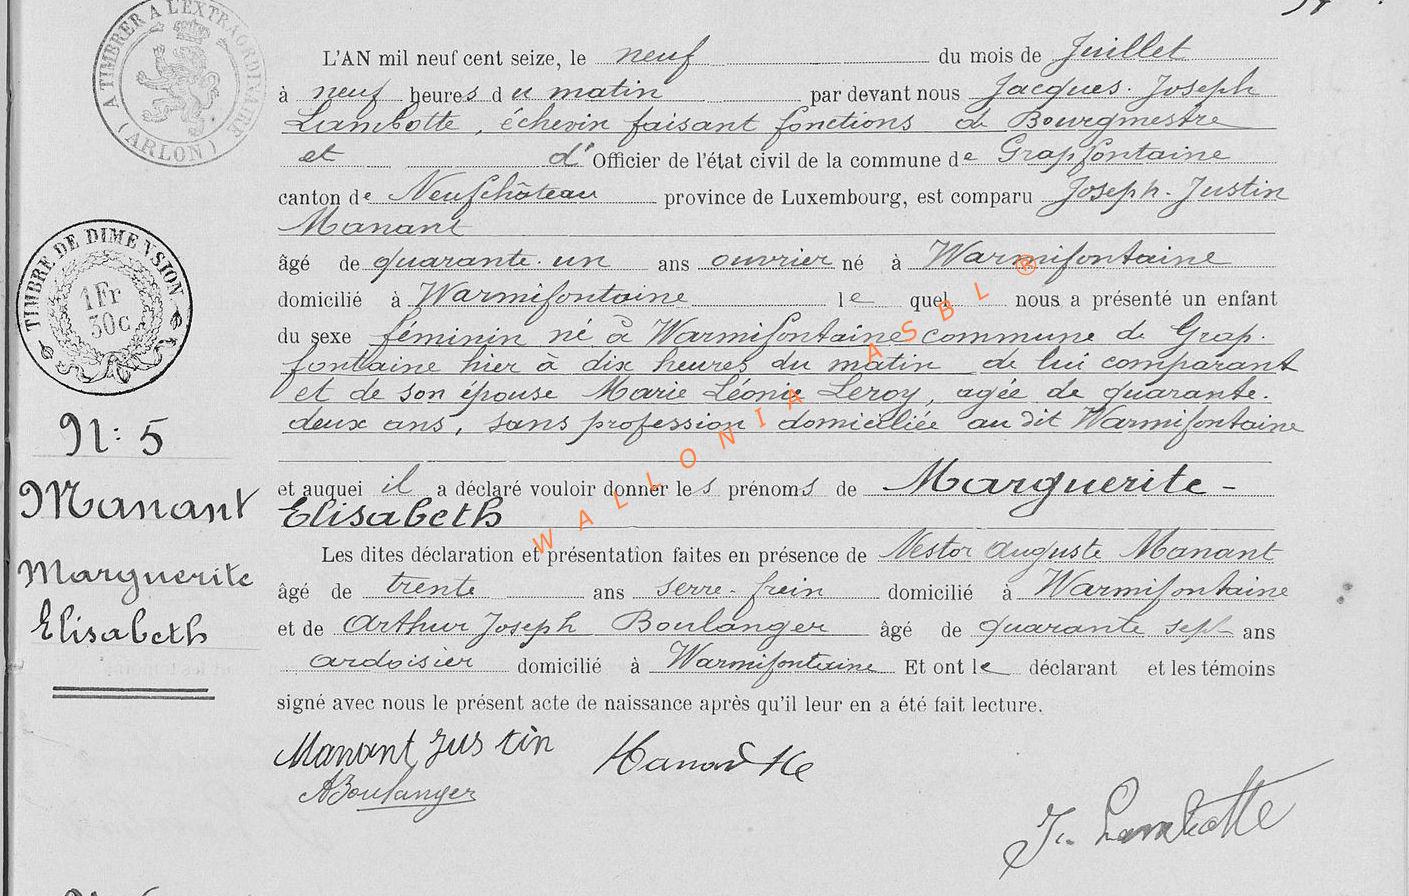 A TIMBRER A L'EXTRAORDINAIRE
(ARLON)
L'AN mil neuf cent seize, le neuf du mois de Juillet
à neuf heures du matin par devant nous Jacques. Joseph
Lambotte, échevin faisant fonctions de Bourgmestre
et d' Officier de l'état civil de la commune de Grapfontaine
canton de Neufchâteau province de Luxembourg, est comparu Joseph. Justin
Manant
âgé de quarante. un ans ouvrier né à Warmifontaine
domicilié à Warmifontaine lequel nous a présenté un enfant
du sexe féminin né à Warmifontaine commune de Grap.
fontaine hier à dix heures du matin de lui comparant
et de son épouse Marie Léonie Leroy, agée de quarante.
deux ans, sans profession domiciliée au dit Warmifontaine
et auquel il a déclaré vouloir donner les prénoms de Marguerite -
Elisabeth
Les dites déclaration et présentation faites en présence de Nestor Auguste Manant
âgé de trente ans serre-frein domicilié à Warmifontaine
et de Arthur Joseph Boulanger âgé de quarante sept ans
ardoisier domicilié à Warmifontaine Et ont le déclarant et les témoins
signé avec nous le présent acte de naissance après qu'il leur en a été fait lecture.
Manant Justin
ABoulanger
J. Lambotte
TIMBRE DE DIMENSION
1 Fr
50c
N: 5
Manant
Marguerite
Elisabeth
WALLONIA ASBL ®